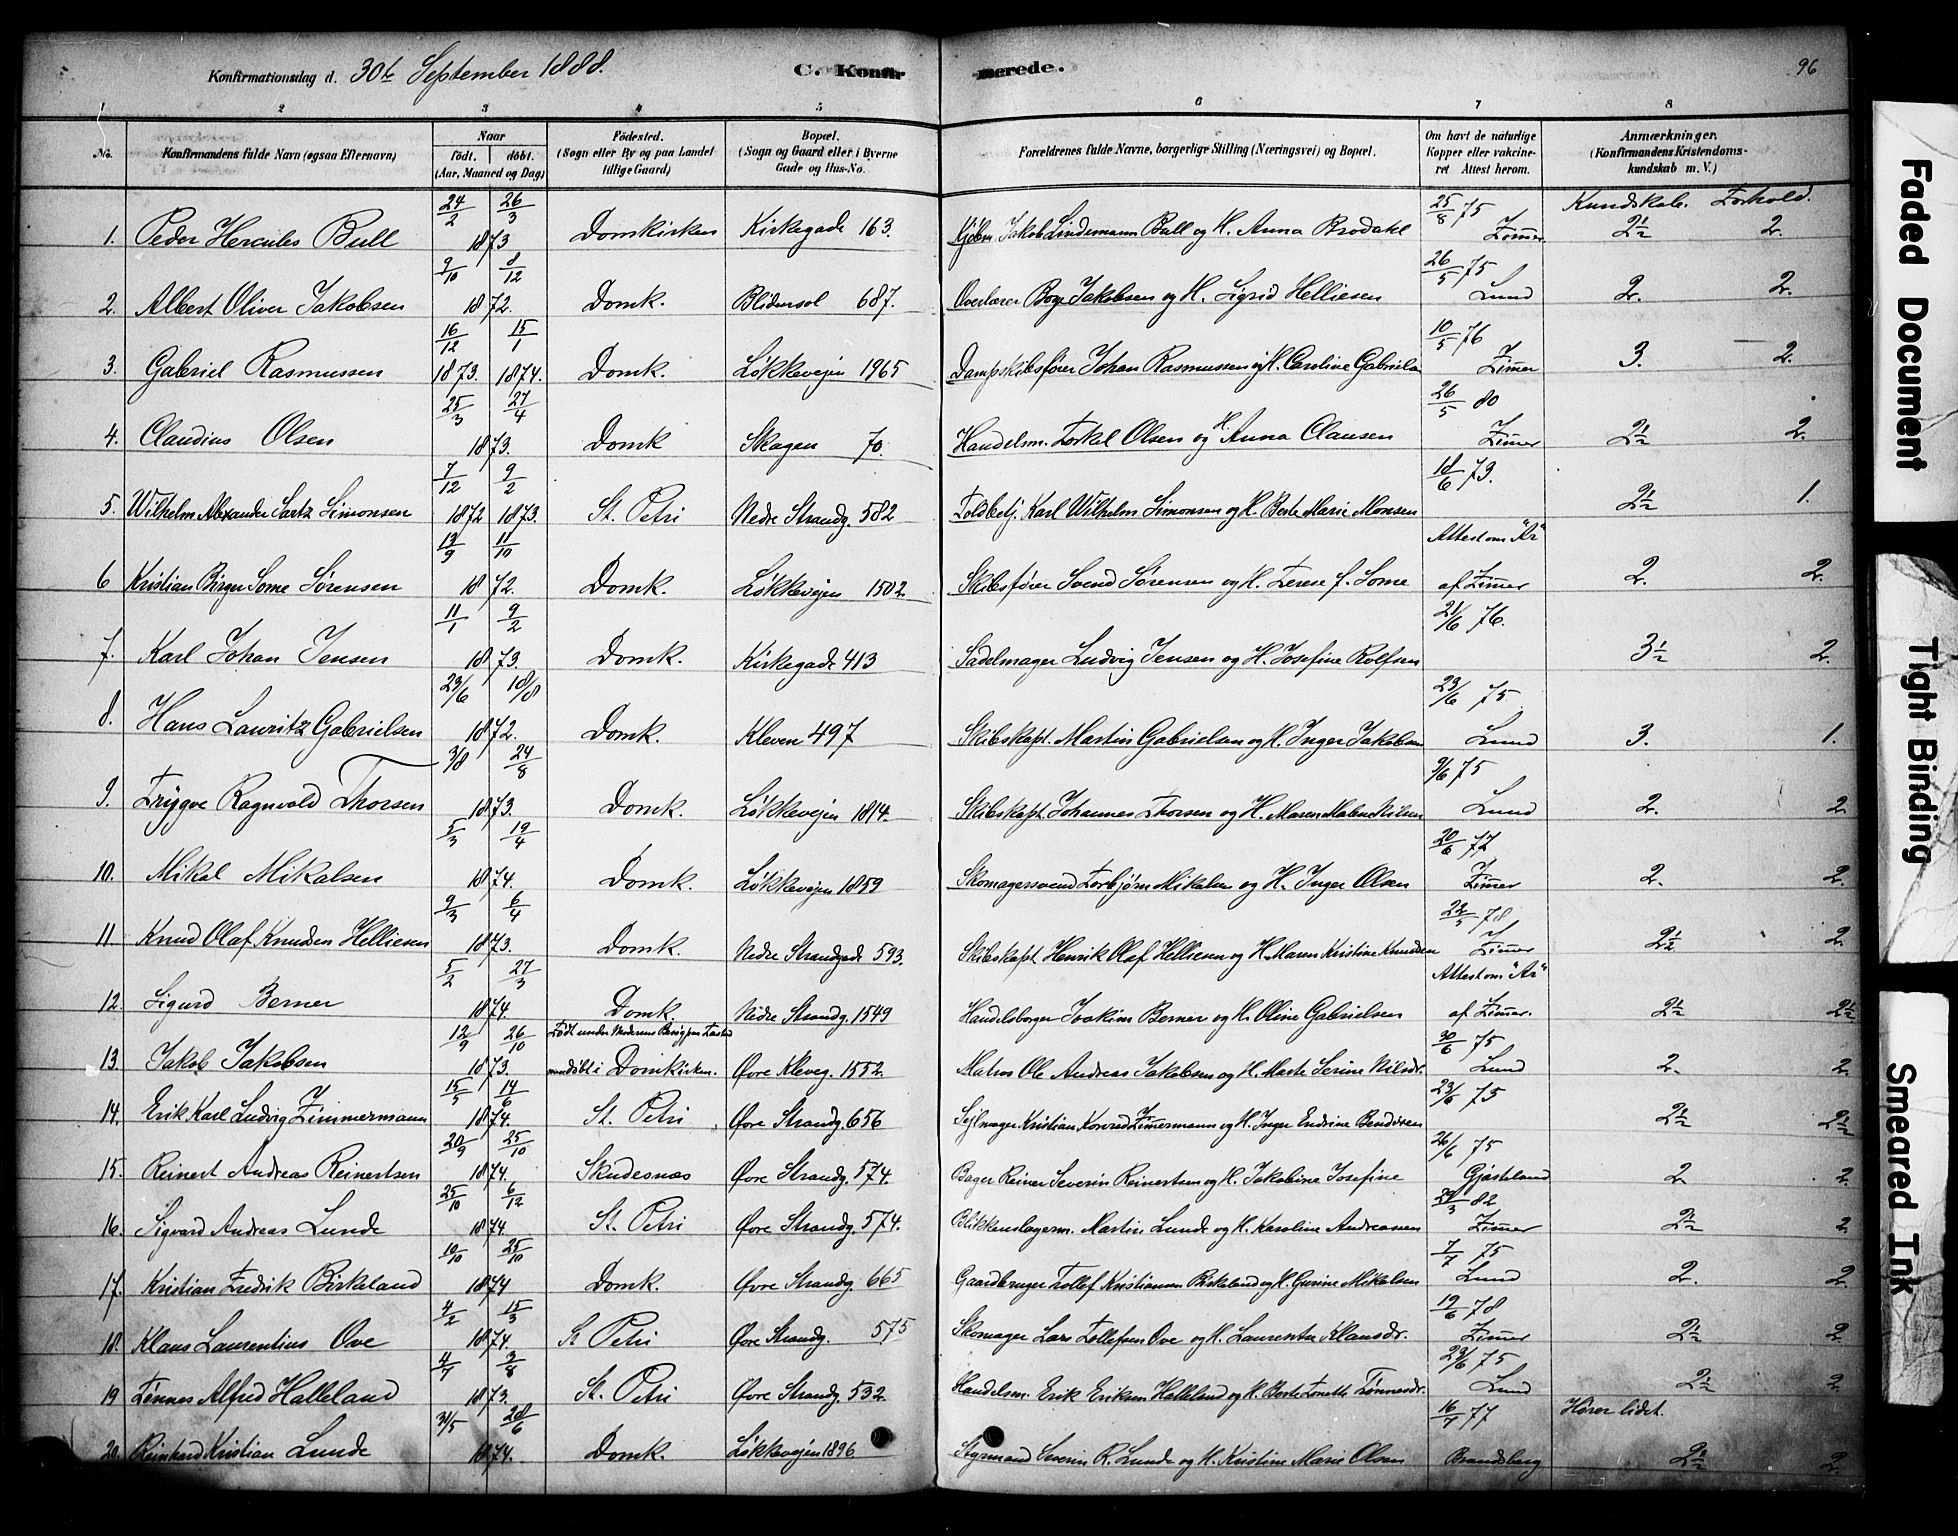 Konfirmationsdag d. 30te September 1888.
C. Konfirmerede.
96
1 2 3 4 5 6 7 8
No. Konfirmandens fulde Navn (ogsaa Efternavn) Naar født. døbt. (Aar, Maaned og Dag) Fødested. (Sogn eller By og paa Landet tillige Gaard) Bopæl. (Sogn og Gaard eller i Byerne Gade og Hus-No. Forældrenes fulde Navne, borgerlige Stilling (Næringsvei) og Bopæl. Om havt de naturlige Kopper eller vakcineret Attest herom. Anmærkninger. (Konfirmandens Kristendomskundskab m. V.)
Kundskab. Forhold.
1. Peder Hercules Bull 24/2 26/3 1873 Domkirken Kirkegade 163. Kjøbm. Jakob Lindemann Bull og H. Anna Brodahl 25/8 75 Zimmer 2½ 2.
2. Albert Oliver Jakobsen 9/10 8/12 1872. Domk. Blidensol 687. Overlærer Boye Jakobsen og H. Sigrid Helliesen 26/5 75 Lund 2. 2.
3. Gabriel Rasmussen 16/12 1873. 15/1 1874. Domk. Løkkevejen 1965 Dampskibsfører Johan Rasmussen og H. Caroline Gabrielsn 10/5 76 Zimer 3. 2.
4. Claudius Olsen 25/3 27/4 1873. Domk Skagen 70. Handelsm. Torkel Olsen og H. Anna Clausen 26/5 80 Zimer 2½ 2.
5. Wilhelm Alexander Sartz Simonsen 7/12 1872 9/2 1873. St. Petri Nedre Strandg. 582 Toldbetj. Karl Wilhelm Simonsen og H. Berte Marie Monsen 18/6 73. 2½ 1.
6 Kristian Birger Some Sørensen 13/9 11/10 1872. Domk. Løkkevejen 1502 Skibsfører Svend Sørensen og H. Terese f. Some Attest om "Ar" af Zimer 2. 2.
7. Karl Johan Jensen 11/1 9/2 1873. Domk. Kirkegade 413 Sadelmager Ludvig Jensen og H. Josefine Rolfsen 21/6 76. 3½ 2.
8. Hans Lauritz Gabrielsen 23/6 18/8 1872. Domk. Kleven 497 Skibskapt. Martin Gabrielsen og H. Inger Jakobsen 23/6 75. Lund 3. 1.
9. Trygve Ragnvald Thorsen 3/8 24/8 1873. Domk. Løkkevejen 1814. Skibskapt. Johannes Thorsen og H. Maren Malene Nilsen 9/6 75 Lund 2. 2.
10. Mikal Mikalsen 5/3 19/4 1874. Domk. Løkkevejen 1859 Skomagersvend Torbjørn Mikalsen og H. Inger Olsen 20/6 77 Zimer 2. 2.
11 Knud Olaf Knudsen Helliesen 9/3 6/4 1873. Domk. Nedre Strandgade 593. Skibskapt. Henrik Olaf Helliesen og H. Maren Kristine Knudsen 22/5 78 Zimer 2½ 2.
12. Sigurd Berner 5/2 27/3 1874. Domk. Nedre Strandg. 1549 Handelsborger Joakim Berner og H. Oline Gabrielsen Attest om "Ar" af Zimer. 2½ 2½
13. Jakob Jakobsen 12/9 26/10 1873. Født under Moderens i Domkirken. Øvre Kleveg. 1552. Matros Ole Andreas Jakobsen og H. Marte Serine Nilsdr. 30/6 75 Lund 2. 2.
14. Erik Karl Ludvig Zimmermann 15/5 14/6 1874. St. Petri Øvre Strandg. 656 Sejlmager Kristian Konrad Zimmermann og H. Inger Endrine Bendixen 23/6 75 2½ 2½
15. Reinert Andreas Reinertsen 20/9 25/10 1874. Skudesnæs Øvre Strandg. 574. Bager Reiner Severin Reinertsen og H. Jakobine Josefine 26/6 75 Gjesteland 2 2.
16. Sigvard Andreas Lunde 25/10 6/12 1874. St. Petri Øvre Strandg. 574. Blikkenslagerm. Martin Lunde og H. Karoline Andreasen 82 Zimer 2½ 2.
17. Kristian Fredrik Birkeland 10/10 25/10 1874 Domk. Øvre Strandg. 665 Gaardbruger Tollef Kristiansen Birkeland og H. Gurine Mikalsen 7/7 75 Lund 2. 2.
18. Klaus Laurentius Ove 4/2 15/3 1874. St Petri Øvre Strandg. 575 Skomager Lars Tollefsen Ove og H. Laurentse Klausdr. 19/6 78 Zimer 2½ 2.
19 Tønnes Alfred Halleland 4/7 3/8 1873. St. Petri Øvre Strandg. 532 Handelsm. Erik Eriksen Halleland og H. Berte Tonette Tønnesdr. 23/6 75 Lund 2½ 2.
20. Reinhard Kristian Lunde 31/5 28/6 1874. Domk. Løkkevejen 1896 Styrmand Severin R. Lunde og H. Kristine Marie Olsen 16/7 77 Brandsberg Hører lidet. 2½ 2.
Faded Document
Tight Binding
Smeared Ink